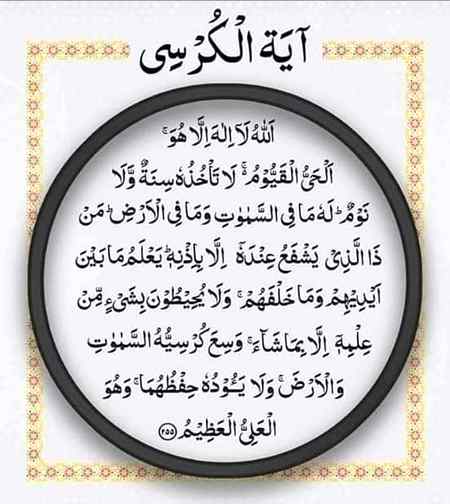 آيَة الْكُرْسِى
اَللّٰهُ لَاۤ اِلٰهَ اِلَّا هُوَۚ
اَلْحَىُّ الْقَيُّوْمُ ۚ لَا تَاْخُذُهٗ سِنَةٌ وَّلَا
نَوْمٌ ؕ لَهٗ مَا فِى السَّمٰوٰتِ وَمَا فِى الْاَرْضِ ؕ مَنْ
ذَا الَّذِىْ يَشْفَعُ عِنْدَهٗۤ اِلَّا بِاِذْنِهٖ ؕ يَعْلَمُ مَا بَيْنَ
اَيْدِيْهِمْ وَمَا خَلْفَهُمْ ۚ وَلَا يُحِيْطُوْنَ بِشَىْءٍ مِّنْ
عِلْمِهٖۤ اِلَّا بِمَا شَآءَ ۚ وَسِعَ كُرْسِيُّهُ السَّمٰوٰتِ
وَالْاَرْضَ ۚ وَلَا يَـــُٔوْدُهٗ حِفْظُهُمَا ۚ وَهُوَ
الْعَلِىُّ الْعَظِيْمُ ﴿۲۵۵﴾